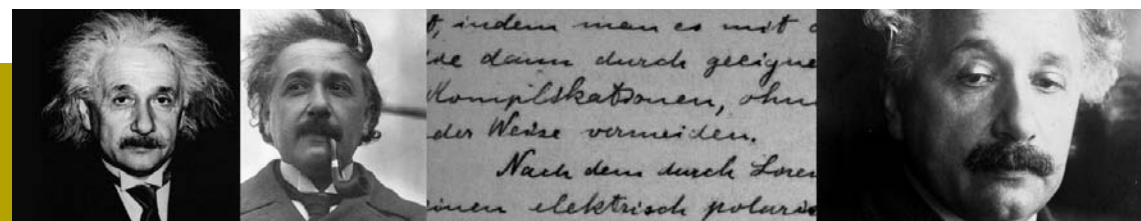 t, indem man es mit
dann durch geeigne
Komplikationen, ohn
der Weise vermeiden.
Nach dem durch Loren
einen elektrisch polaris